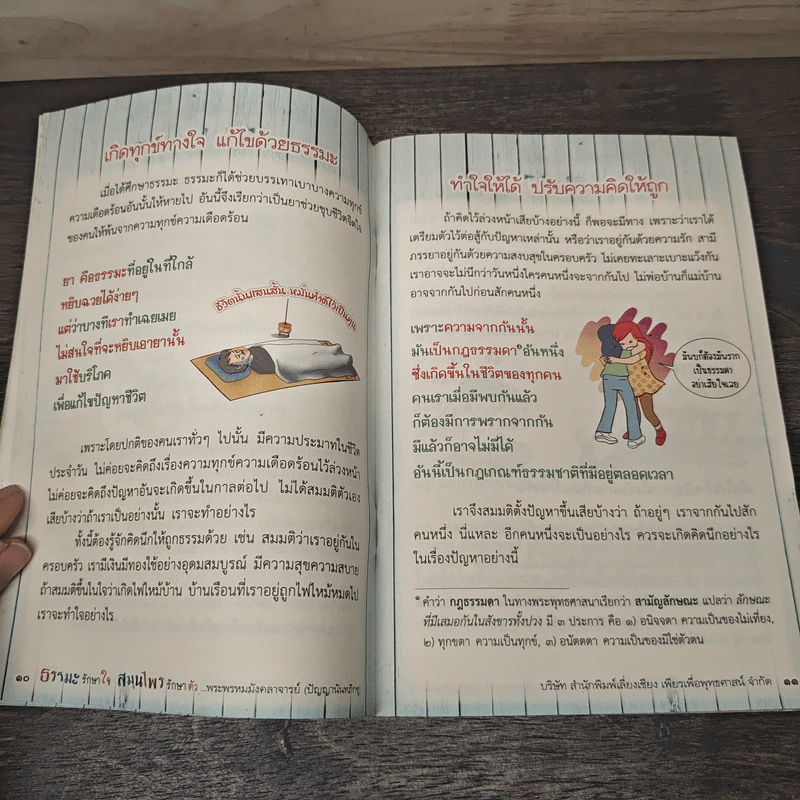 เกิดทุกข์ทางใจ แก้ไขด้วยธรรมะ
เมื่อได้ศึกษาธรรมะ ธรรมะก็ได้ช่วยบรรเทาเบาบางความทุกข์
ความเดือดร้อนอันนั้นให้หายไป อันนี้จึงเรียกว่าเป็นยาช่วยชุบชีวิตจิตใจ
ของคนให้พ้นจากความทุกข์ความเดือดร้อน
ยา คือธรรมะที่อยู่ในที่ใกล้
หยิบฉวยได้ง่ายๆ
แต่ว่าบางทีเราทำเฉยเมย
ไม่สนใจที่จะหยิบเอายานั้น
มาใช้บริโภค
เพื่อแก้ไขปัญหาชีวิต
ชีวิตนั้นแสนสั้น หมั่นทำดีไว้เป็นทุน
เพราะโดยปกติของคนเราทั่วๆ ไปนั้น มีความประมาทในชีวิต
ประจำวัน ไม่ค่อยจะคิดถึงเรื่องความทุกข์ความเดือดร้อนไว้ล่วงหน้า
ไม่ค่อยจะคิดถึงปัญหาอันจะเกิดขึ้นในกาลต่อไป ไม่ได้สมมติตัวเอง
เสียบ้างว่าถ้าเราเป็นอย่างนั้น เราจะทำอย่างไร
ทั้งนี้ต้องรู้จักคิดนึกให้ถูกธรรมด้วย เช่น สมมติว่าเราอยู่กันใน
ครอบครัว เรามีเงินมีทองใช้อย่างอุดมสมบูรณ์ มีความสุขความสบาย
ถ้าสมมติขึ้นในใจว่าเกิดไฟไหม้บ้าน บ้านเรือนที่เราอยู่ถูกไฟไหม้หมดไป
เราจะทำใจอย่างไร
๑๐ ธรรมะ รักษาใจ สมุนไพร รักษาตัว ...พระพรหมมังคลาจารย์ (ปัญญานันทภิกขุ)
ทำใจให้ได้ ปรับความคิดให้ถูก
ถ้าคิดไว้ล่วงหน้าเสียบ้างอย่างนี้ ก็พอจะมีทาง เพราะว่าเราได้
เตรียมตัวไว้ต่อสู้กับปัญหาเหล่านั้น หรือว่าเราอยู่กันด้วยความรัก สามี
ภรรยาอยู่กันด้วยความสงบสุขในครอบครัว ไม่เคยทะเลาะเบาะแว้งกัน
เราอาจจะไม่นึกว่าวันหนึ่งใครคนหนึ่งจะจากกันไป ไม่พ่อบ้านก็แม่บ้าน
อาจจากกันไปก่อนสักคนหนึ่ง
เพราะความจากกันนั้น
มันเป็นกฎธรรมดา๑อันหนึ่ง
ซึ่งเกิดขึ้นในชีวิตของทุกคน
คนเราเมื่อมีพบกันแล้ว
ก็ต้องมีการพรากจากกัน
มีแล้วก็อาจไม่มีได้
อันนี้เป็นกฎเกณฑ์ธรรมชาติที่มีอยู่ตลอดเวลา
เป็นธรรมดา
อย่าเสียใจเลย
เราจึงสมมติตั้งปัญหาขึ้นเสียบ้างว่า ถ้าอยู่ๆ เราจากกันไปสัก
คนหนึ่ง นี่แหละ อีกคนหนึ่งจะเป็นอย่างไร ควรจะเกิดคิดนึกอย่างไร
ในเรื่องปัญหาอย่างนี้
๑ คำว่า กฎธรรมดา ในทางพระพุทธศาสนาเรียกว่า สามัญลักษณะ แปลว่า ลักษณะ
ที่มีเสมอกันในสังขารทั้งปวง มี ๓ ประการ คือ ๑) อนิจจตา ความเป็นของไม่เที่ยง,
๒) ทุกขตา ความเป็นทุกข์, ๓) อนัตตตา ความเป็นของมิใช่ตัวตน
บริษัท สำนักพิมพ์เลี่ยงเชียง เพียรเพื่อพุทธศาสน์ จำกัด ๑๑